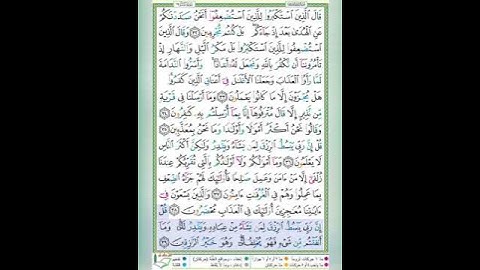 قَالَ ٱلَّذِينَ ٱسْتَكْبَرُوا۟ لِلَّذِينَ ٱسْتُضْعِفُوٓا۟ أَنَحْنُ صَدَدْنَٰكُمْ
عَنِ ٱلْهُدَىٰ بَعْدَ إِذْ جَآءَكُم ۖ بَلْ كُنتُم مُّجْرِمِينَ ٣٢ وَقَالَ ٱلَّذِينَ
ٱسْتُضْعِفُوا۟ لِلَّذِينَ ٱسْتَكْبَرُوا۟ بَلْ مَكْرُ ٱلَّيْلِ وَٱلنَّهَارِ إِذْ
تَأْمُرُونَنَآ أَن نَّكْفُرَ بِٱللَّهِ وَنَجْعَلَ لَهُۥٓ أَندَادًا ۚ وَأَسَرُّوا۟ ٱلنَّدَامَةَ
لَمَّا رَأَوُا۟ ٱلْعَذَابَ وَجَعَلْنَا ٱلْأَغْلَٰلَ فِىٓ أَعْنَاقِ ٱلَّذِينَ كَفَرُوا۟
هَلْ يُجْزَوْنَ إِلَّا مَا كَانُوا۟ يَعْمَلُونَ ٣٣ وَمَآ أَرْسَلْنَا فِى قَرْيَةٍ
مِّن نَّذِيرٍ إِلَّا قَالَ مُتْرَفُوهَآ إِنَّا بِمَآ أُرْسِلْتُم بِهِۦ كَٰفِرُونَ ٣٤
وَقَالُوا۟ نَحْنُ أَكْثَرُ أَمْوَٰلًا وَأَوْلَٰدًا وَمَا نَحْنُ بِمُعَذَّبِينَ ٣٥
قُلْ إِنَّ رَبِّى يَبْسُطُ ٱلرِّزْقَ لِمَن يَشَآءُ وَيَقْدِرُ وَلَٰكِنَّ أَكْثَرَ ٱلنَّاسِ
لَا يَعْلَمُونَ ٣٦ وَمَآ أَمْوَٰلُكُمْ وَلَآ أَوْلَٰدُكُم بِٱلَّتِى تُقَرِّبُكُمْ عِندَنَا
زُلْفَىٰٓ إِلَّا مَنْ ءَامَنَ وَعَمِلَ صَٰلِحًا فَأُو۟لَٰٓئِكَ لَهُمْ جَزَآءُ ٱلضِّعْفِ
بِمَا عَمِلُوا۟ وَهُمْ فِى ٱلْغُرُفَٰتِ ءَامِنُونَ ٣٧ وَٱلَّذِينَ يَسْعَوْنَ فِىٓ
ءَايَٰتِنَا مُعَٰجِزِينَ أُو۟لَٰٓئِكَ فِى ٱلْعَذَابِ مُحْضَرُونَ ٣٨ قُلْ
إِنَّ رَبِّى يَبْسُطُ ٱلرِّزْقَ لِمَن يَشَآءُ مِنْ عِبَادِهِۦ وَيَقْدِرُ لَهُۥ ۚ وَمَآ
أَنفَقْتُم مِّن شَىْءٍ فَهُوَ يُخْلِفُهُۥ ۖ وَهُوَ خَيْرُ ٱلرَّٰزِقِينَ ٣٩